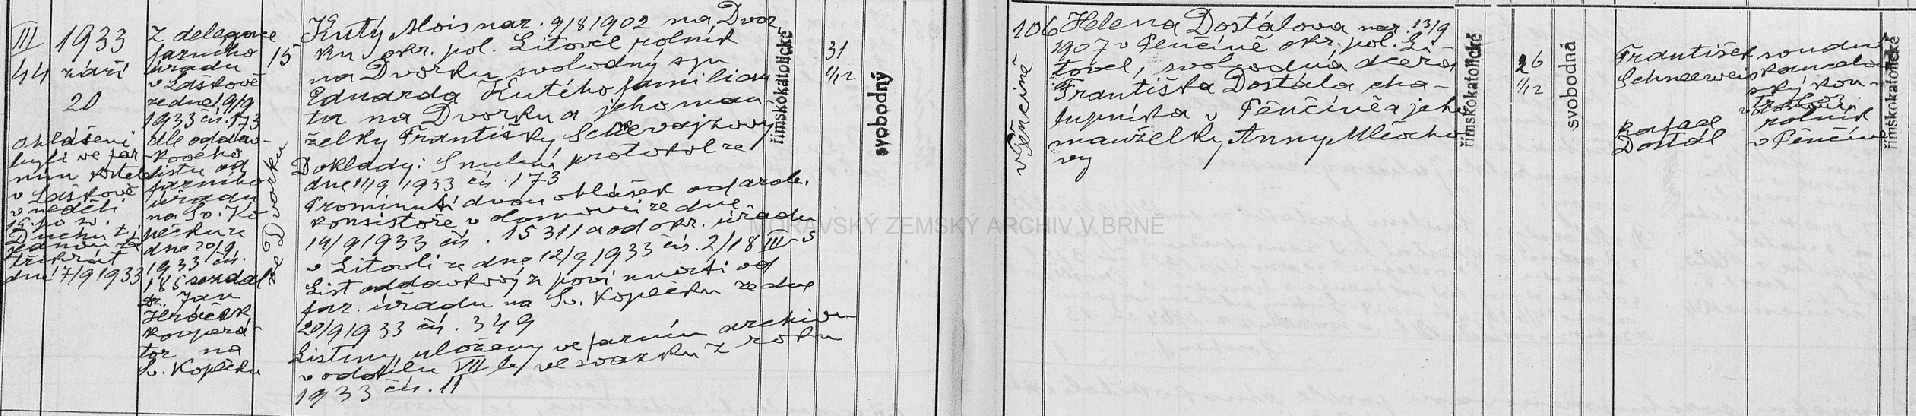 III
44
1933
září
20
ohlášeni
byli ve far
v Laškově
v neděli
dne 17/9 1933
z delegace
farního
úřadu
v Laškově
ze dne 19/9
1933 čís. 173
dle oddav-
kového
listu od
farního
úřadu
na Sv. Ko
pečku ze
dne 20/9
1933 čís.
186 sezdal
Jan
kooperá-
tor na
Sv. Kopečku
15
ze Dvorku
Kutý Alois nar. 9/8 1902 na Dvor
ku okr. pol. Litovel rolník
na Dvorku, svobodný syn
Eduarda Kutého familian
ta na Dvorku a jeho man-
želky Františky
Doklady: Snubní protokol ze
dne 11/9 1933 čís. 173
Prominutí dvou ohlášek od arcib.
konsistoře v Olomouci ze dne
19/9 1933 čís. 15311 a od okr. úřadu
v Litovli ze dne 12/9 1933 čís. 2/18 III-3
List oddavkový z povinnosti od
far. úřadu na Sv. Kopečku ze dne
20/9 1933 čís. 349
Listiny uloženy ve farním archivu
v oddílu VII b/ ve svazku z roku
1933 čís. 11
římskokatolické
31
1/12
svobodný
106
v Pěnčině
Helena Dostálova nar. 13/9
1907 v Pěnčině okr. pol. Li-
tovel, svobodná dcera
Františka Dostála cha-
lupníka v Pěnčině a jeho
manželky Anny Mlčocho
vy
římskokatolické
26
1/12
svobodná
František
Schneeweis
Dostál
rolník
v Pěnčině
římskokatolické
MORAVSKÝ ZEMSKÝ ARCHIV V BRNĚ